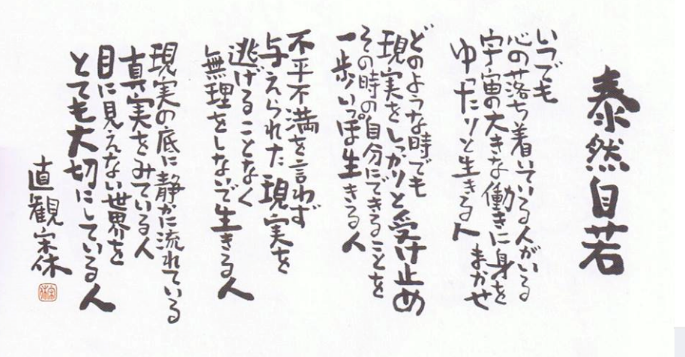 泰然自若
いつでも
心の落ち着いている人がいる
宇宙の大きな働きに身をまかせ
ゆったりと生きる人
どのような時でも
現実をしっかりと受け止め
その時の自分にできることを
一歩いっぽ生きる人
不平不満を言わず
与えられた現実を
逃げることなく
無理をしないで生きる人
現実の底に静かに流れている
真実をみている人
目に見えない世界を
とても大切にしている人
直観宗休